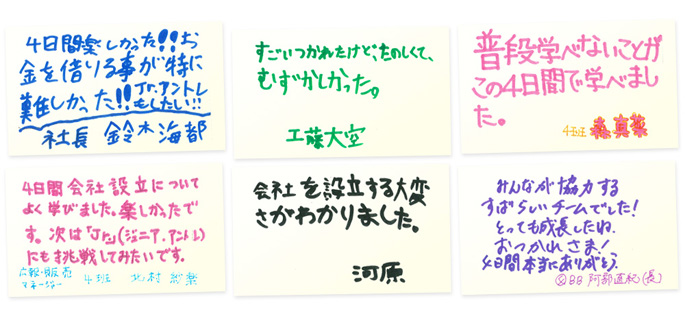 4日間楽しかった!!お
金を借りる事が特に
難しかった!!Jr.アントレ
もしたい!!!
社長 鈴木海都
すごいつかれたけど、たのしくて、
むずかしかった。
工藤大空
普段学べないことが
この4日間で学べまし
た。
4五班 森真菜
4日間会社設立について
よく学びました。楽しかったで
す。次は「Jr.」(ジュニア.アントレ)
にも挑戦してみたいです。
広報・販売
マネージャー 4班 北村
会社を設立する大変
さがわかりました。
河原
みんなが協力する
すばらしいチームでした!
とっても成長したね。
おつかれさま!
4日間本当にありがとう。
阿部直紀(長)